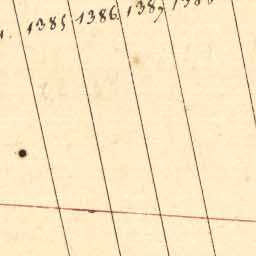 1385 1386 1387